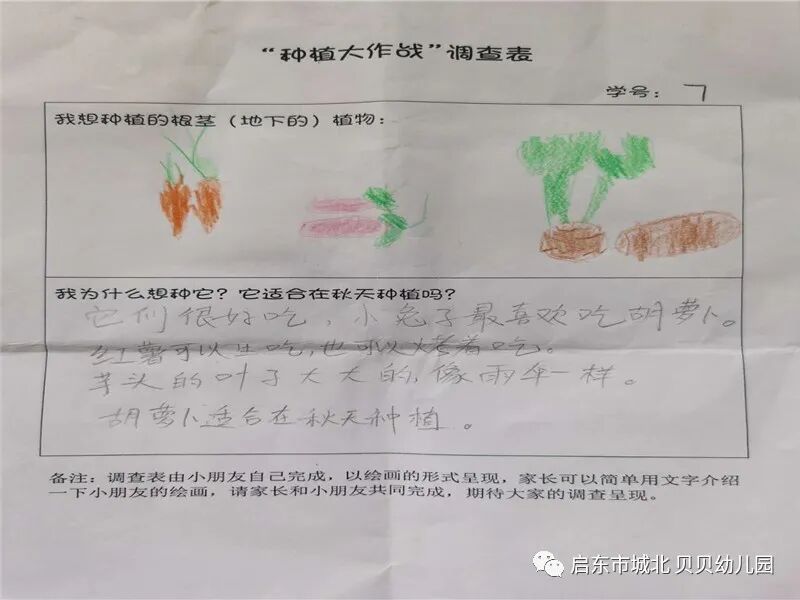 “种植大作战”调查表
学号：7
我想种植的根茎（地下的）植物：
我为什么想种它？它适合在秋天种植吗？
它们很好吃，小兔子最喜欢吃胡萝卜。
红薯可以生吃，也可以烤着吃。
芋头的叶子大大的，像雨伞一样。
胡萝卜适合在秋天种植。
备注：调查表由小朋友自己完成，以绘画的形式呈现，家长可以简单用文字介绍
一下小朋友的绘画，请家长和小朋友共同完成，期待大家的调查呈现。
启东市城北贝贝幼儿园